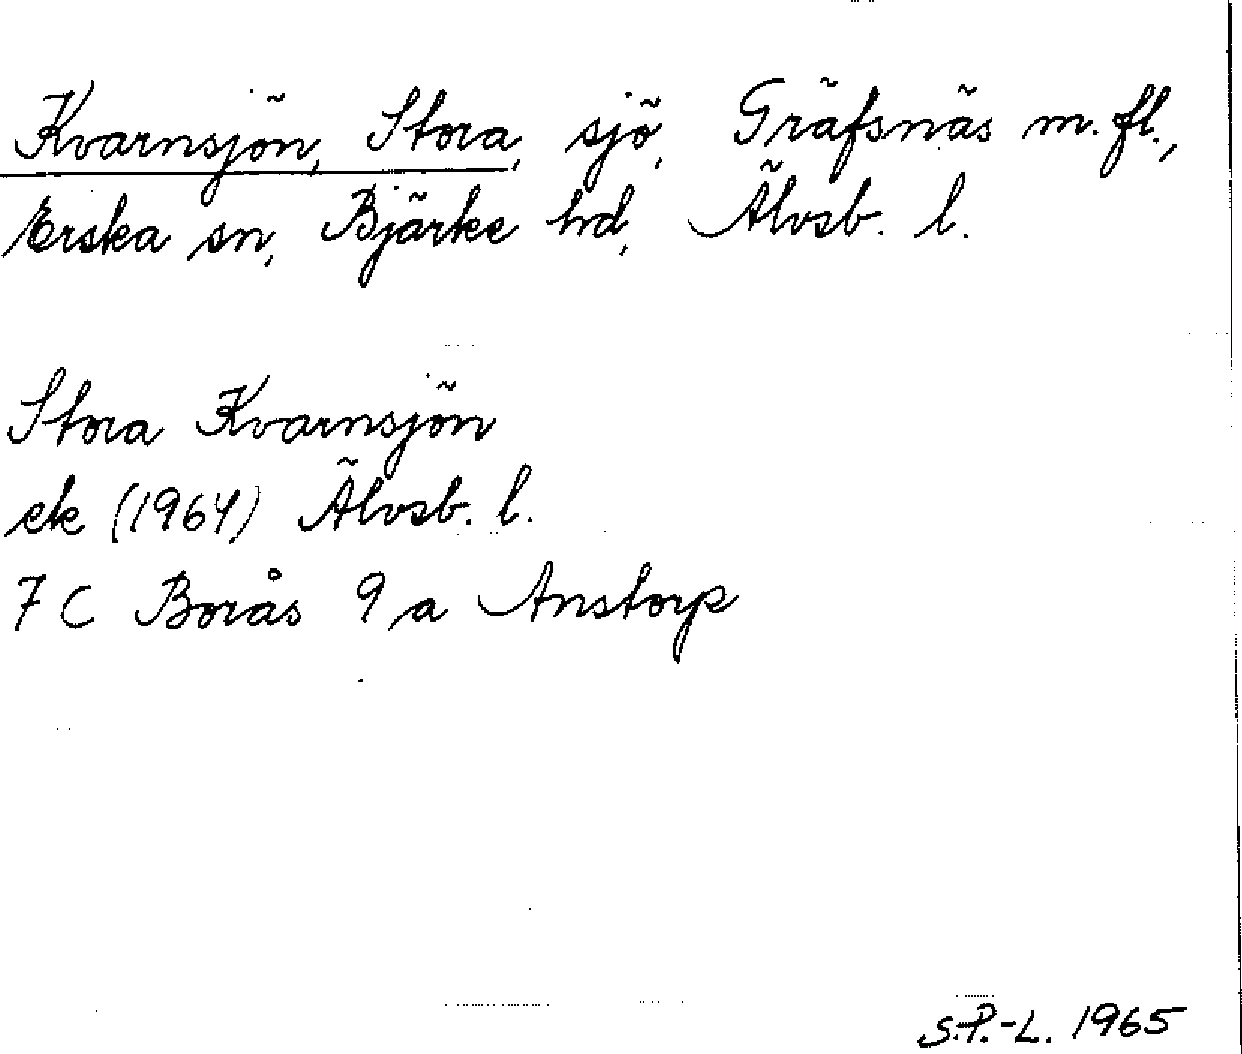 Kvarnsjön, Stora, sjö, Gräfsnäs m. fl.,
Erska sn, Bjärke hd, Älvsb. l.
Stora Kvarnsjön
ek (1964) Älvsb. l.
7 C Borås 9 a Anstorp
S.P.-L. 1965